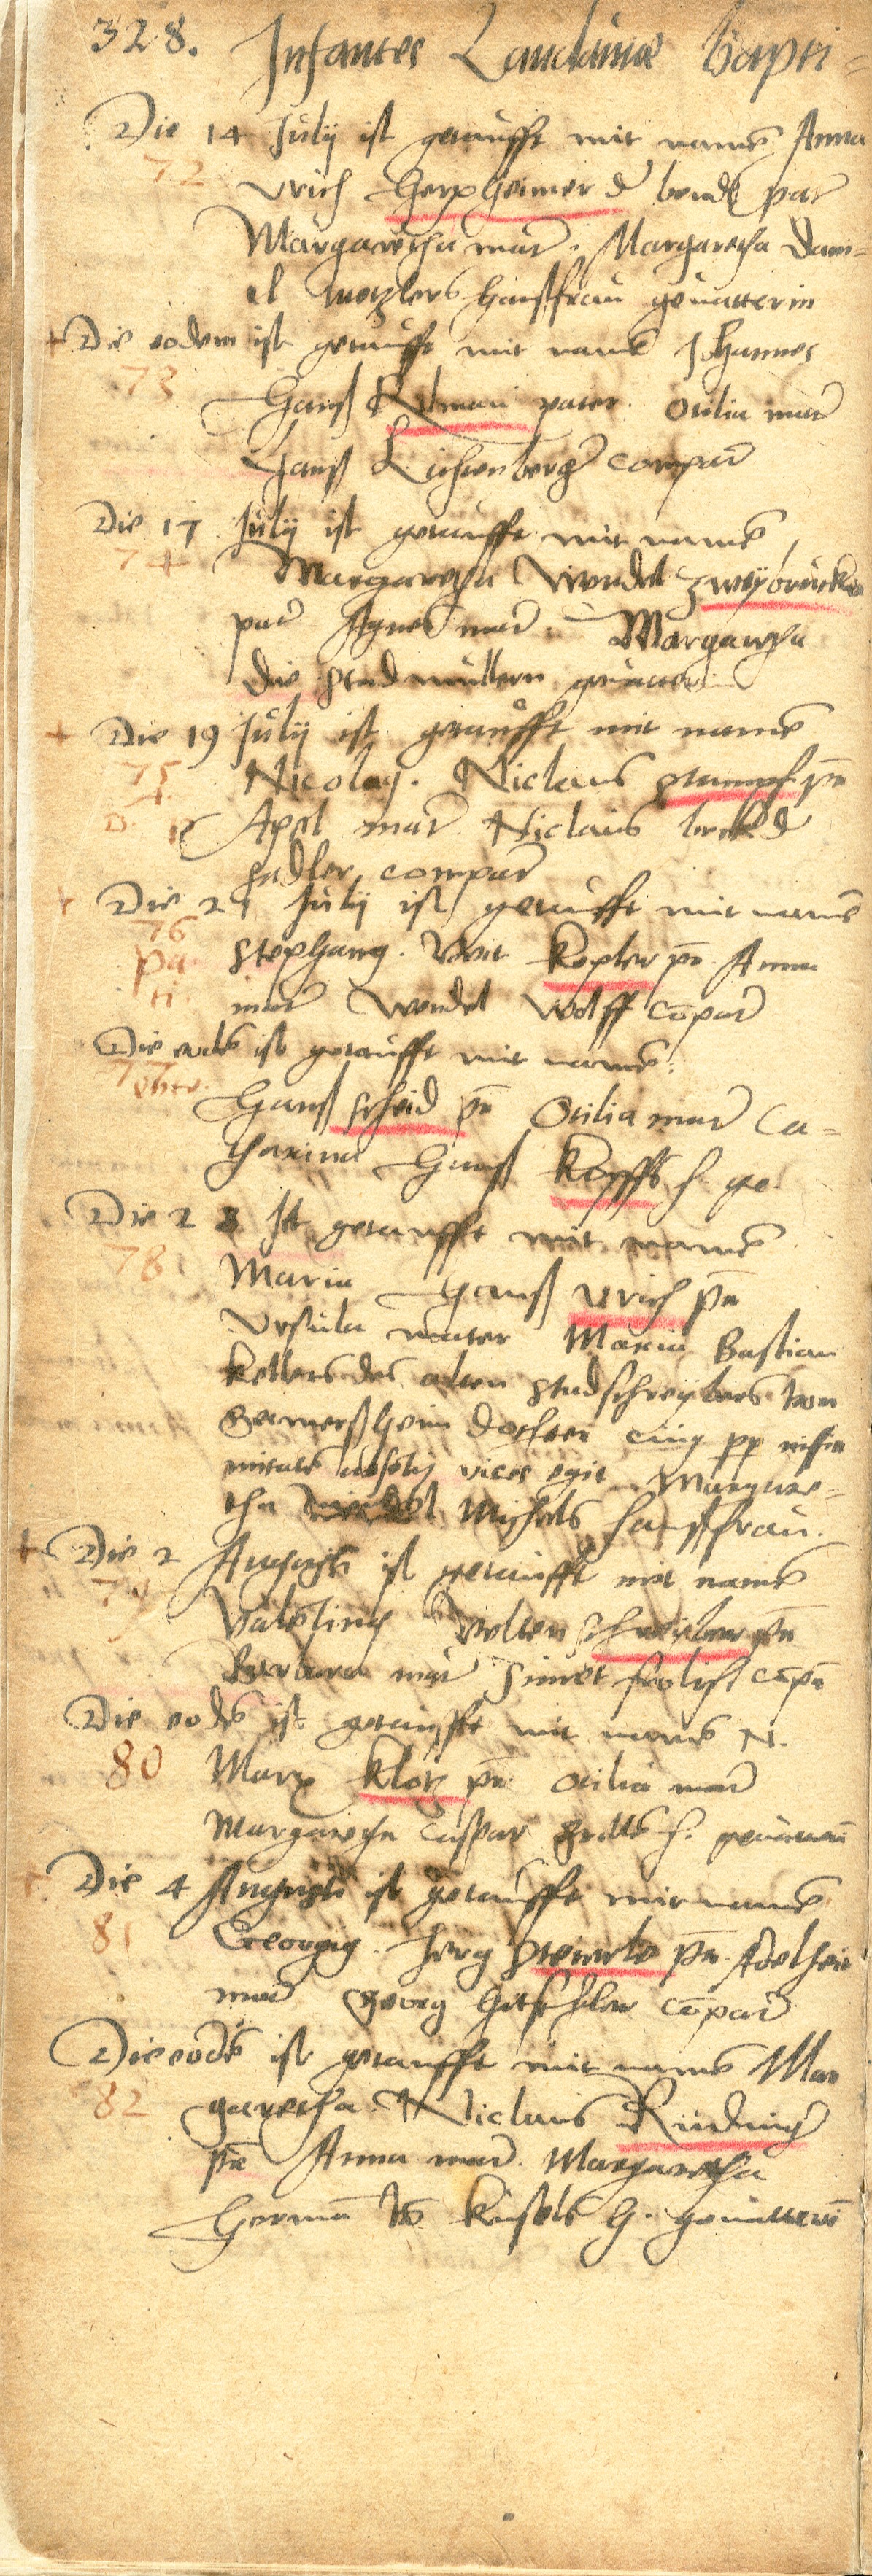 328. Infantes Laudaniae bapti=
Die 14 Julij ist getaufft mit namē Anna
72
Vrich Herxheimer d̄ bend patr̄
Margaretha matr̄. Margaretha Dani=
el Metzlers haußfrau geuatterin
+ Die eodem ist getaufft mit namē Johannes
73
Hanß Kilman pater Otilia matr̄
Hanß Lichtenberger compatr̄
Die 17 Julij ist getaufft mit namē
74
Margaretha Wendel Zweijbrucken
patr̄ Agnes matr̄. Margaretha
die stadmüllern geuatterin
+ Die 19 Julij ist getaufft mit namē
75
Nicolaꝰ. Niclaus stumpf pr̄
Apel matr̄ Niclaus d̄
sadler compatr̄
+ Die 21 Julij ist getaufft mit namē
76
Stephanꝰ. Veit Kepler pr̄. Anna
matr̄ Wendel Wolff cōpatr̄
Die eodē ist getaufft mit namē:
77
Hanß scheid pr̄ Otilia matr̄ Ca=
tharina Hanß Kopffs h. ge.
Die 28 Ist getaufft mit namē
78
Maria Hanß Vrich pr̄
Vrsula mater Maria Bastian
Kellers des alten stadschreijbers von
Germerßheim dochter cuiꝰ pp infir
mitatē vices egit Margare=
tha Michels haußfrau.
+ Die 2 Augusti ist getaufft mit namē
79
Valētinꝰ Velten pr̄
Barbara matr̄ Simet frolich cōpr̄
Die eodē ist getaufft mit namē N.
80 Marx Klotz pr̄ Otilia matr̄
Margaretha Caspar h. geuatterī
Die 4 Augusti ist getaufft mit namē
81
Georgiꝰ. Jerg Steinrle pr̄. Adelheit
matr̄ Georg cōpatr̄
Die eodē ist getaufft mit namē Mar
82
garetha. Niclaus Rüdinger
pr̄ Anna matr̄. Margaretha
Hermā Kusels H. geuatterī